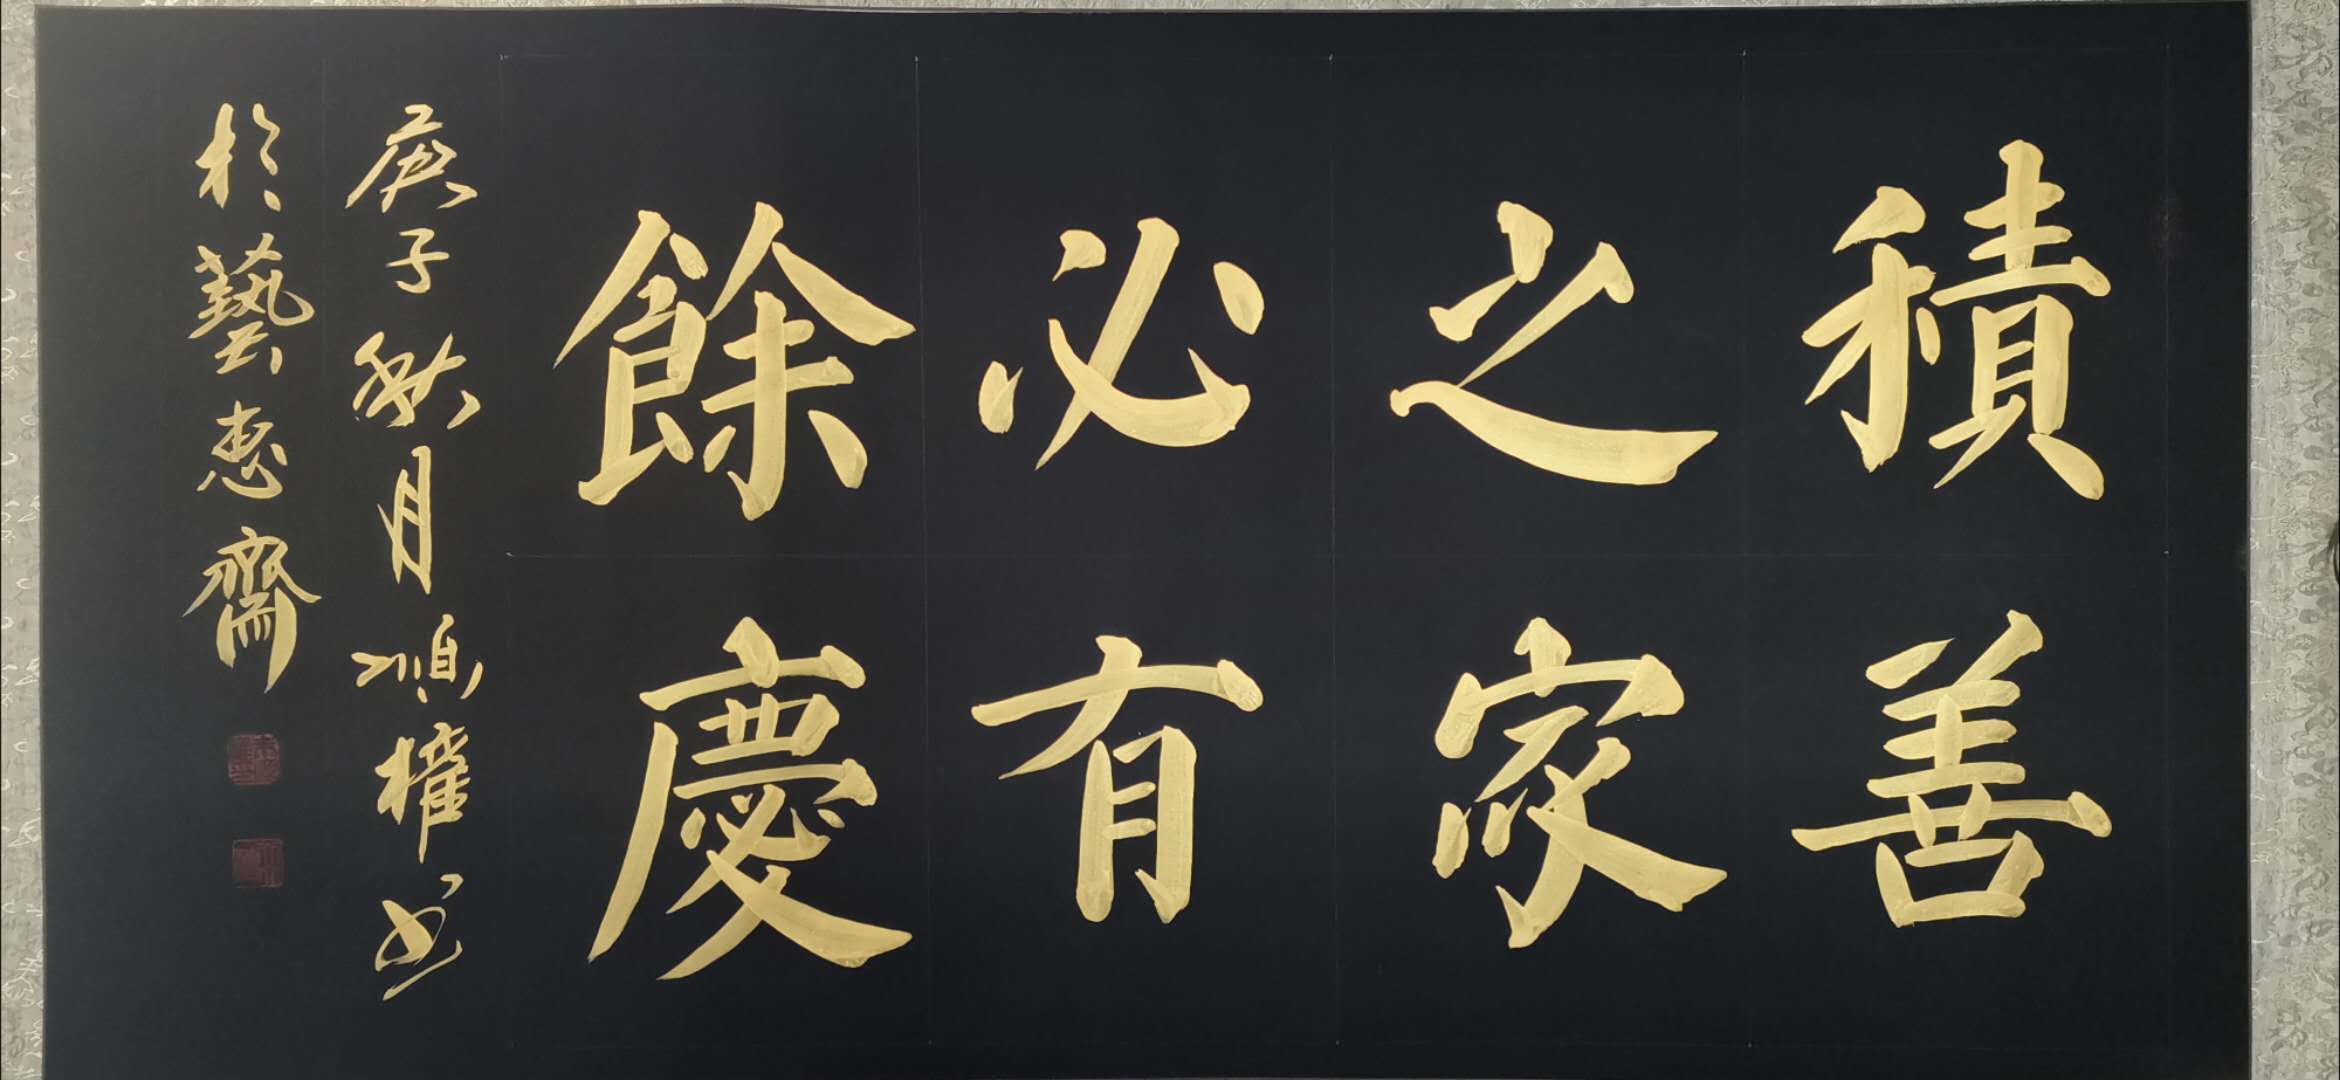 積善
之家
必有
餘慶
庚子秋月順權書
於藝惠齋